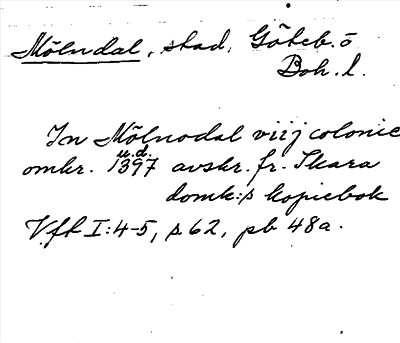 Mölndal, stad, Göteb. o
Boh. l.
In Mölnodal viij colonie
u.d.
omkr. 1397 avskr. fr. Skara
domk:s kopiebok
Vft I:4-5, s. 62, pb 48a.